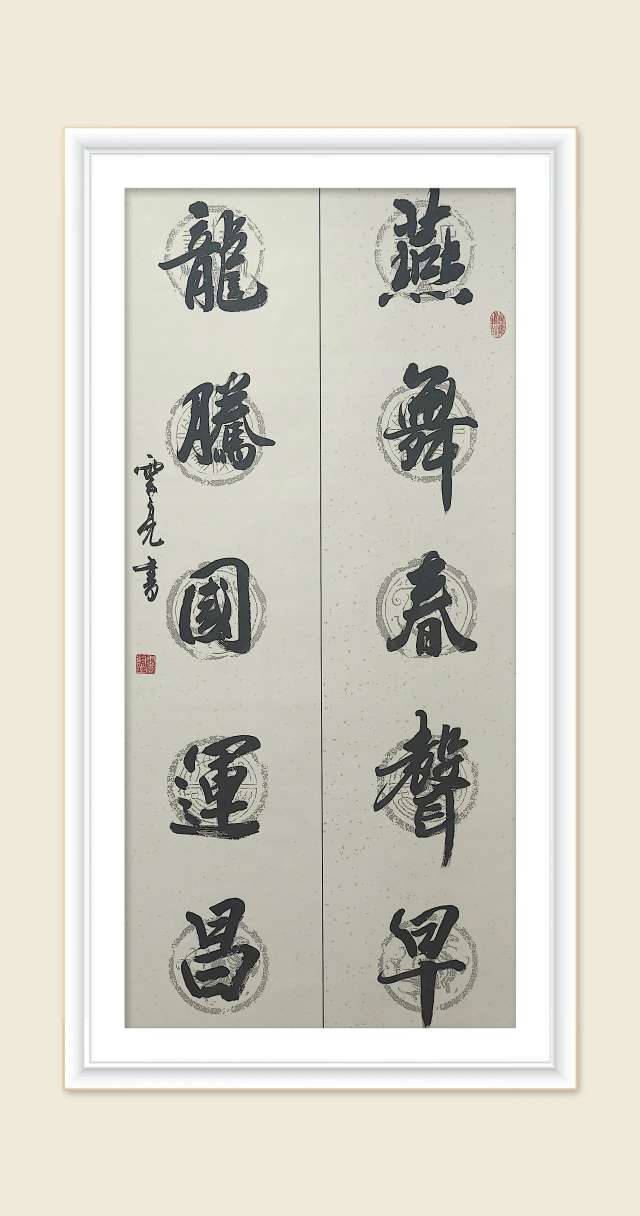 燕舞春聲早
龍騰國運昌
雲亮書